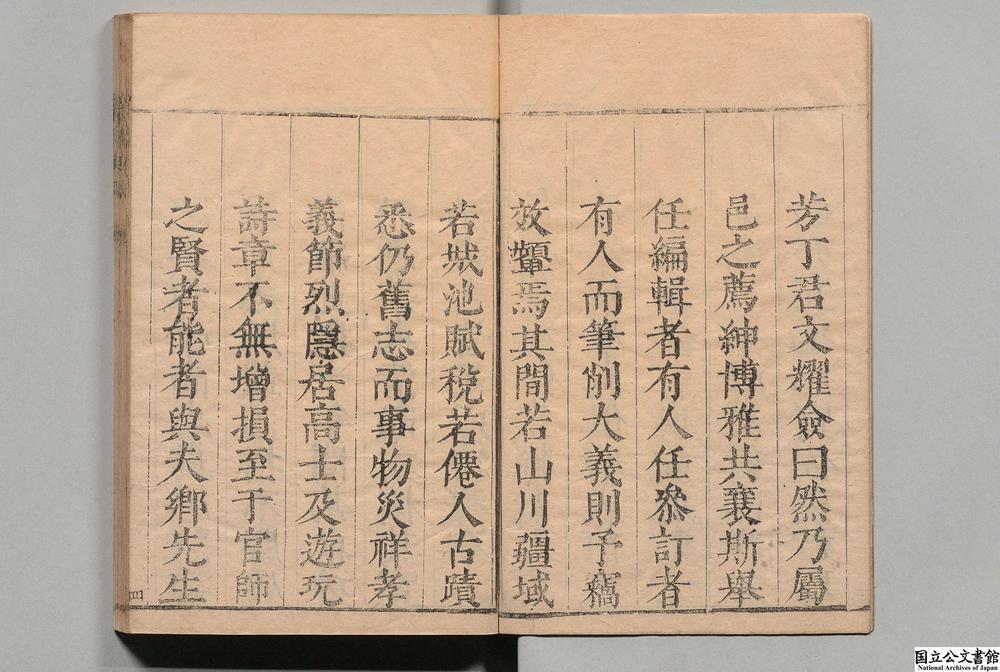 芳丁君文燿僉曰然乃屬
邑之薦紳博雅共襄斯舉
任編輯者有人任叅訂者
有人而筆削大義則予竊
效顰焉其間若山川疆域
若城池賦稅若僊人古蹟
悉仍舊志而事物災祥孝
義節烈隱居高士及遊玩
詩章不無增損至于官師
之賢者能者與夫鄉先生
四
国立公文書館
National Archives of Japan